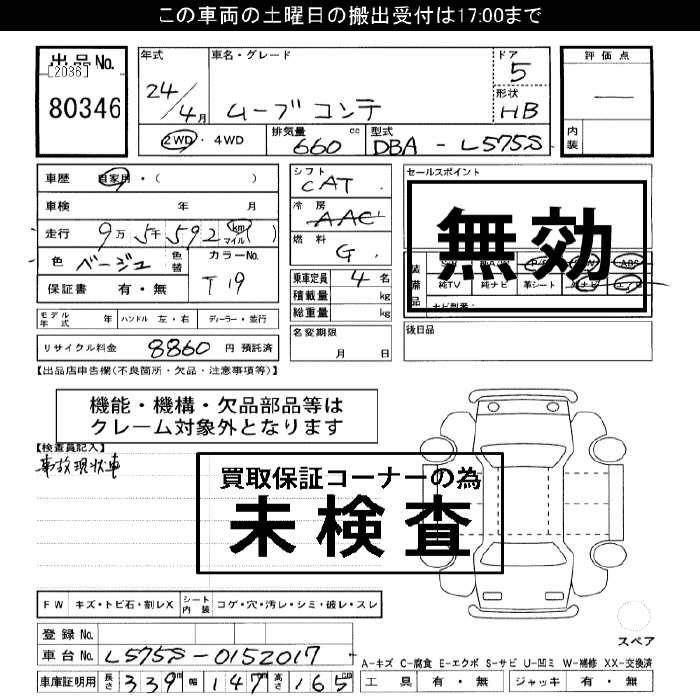 この車両の土曜日の搬出受付は17:00まで
出品No.
[2036]
80346
年式
24/4月
車名・グレード
ムーブコンテ
ドア
5
形状
HB
評価点
―
内装
2WD・4WD
排気量 660 cc
型式 DBA - L575S
車歴 自家用・( )
車検 年 月
走行 9万5千592 km マイル ( )
色 ベージュ 色替 カラーNo. T19
保証書 有・無
シフト CAT
冷房 AAC
燃料 G
乗車定員 4 名
積載量 kg
総重量 kg
セールスポイント
無効
純TV 純ナビ 革シート
モデル年式 年 ハンドル 左・右 ディーラー・並行
名変期限 月 日
後日品
リサイクル料金 8860 円 預託済
【出品店申告欄(不良箇所・欠品・注意事項等)】
機能・機構・欠品部品等は
クレーム対象外となります
【検査員記入】
事故現状車
買取保証コーナーの為
未検査
FW キズ・トビ石・割レX シート内装 コゲ・穴・汚レ・シミ・破レ・スレ
スペア
登録No.
車台No. L575S-0152017
A-キズ C-腐食 E-エクボ S-サビ U-凹ミ W-補修 XX-交換済
車庫証明用 長さ 339 幅 147 高さ 165 cm
工具 有・無 ジャッキ 有・無